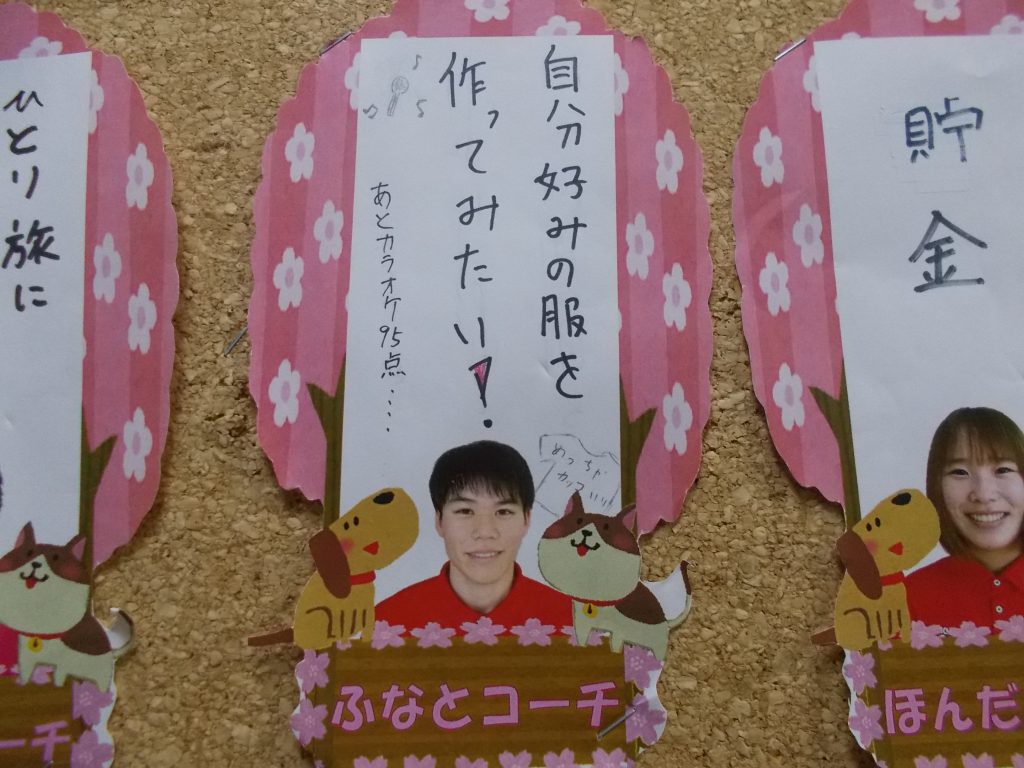 ひとり旅に
ーチ
自分好みの服を
作ってみたい!
あとカラオケ95点・・・・
めっちゃ
カッコいい
ふなとコーチ
貯金
ほんだ